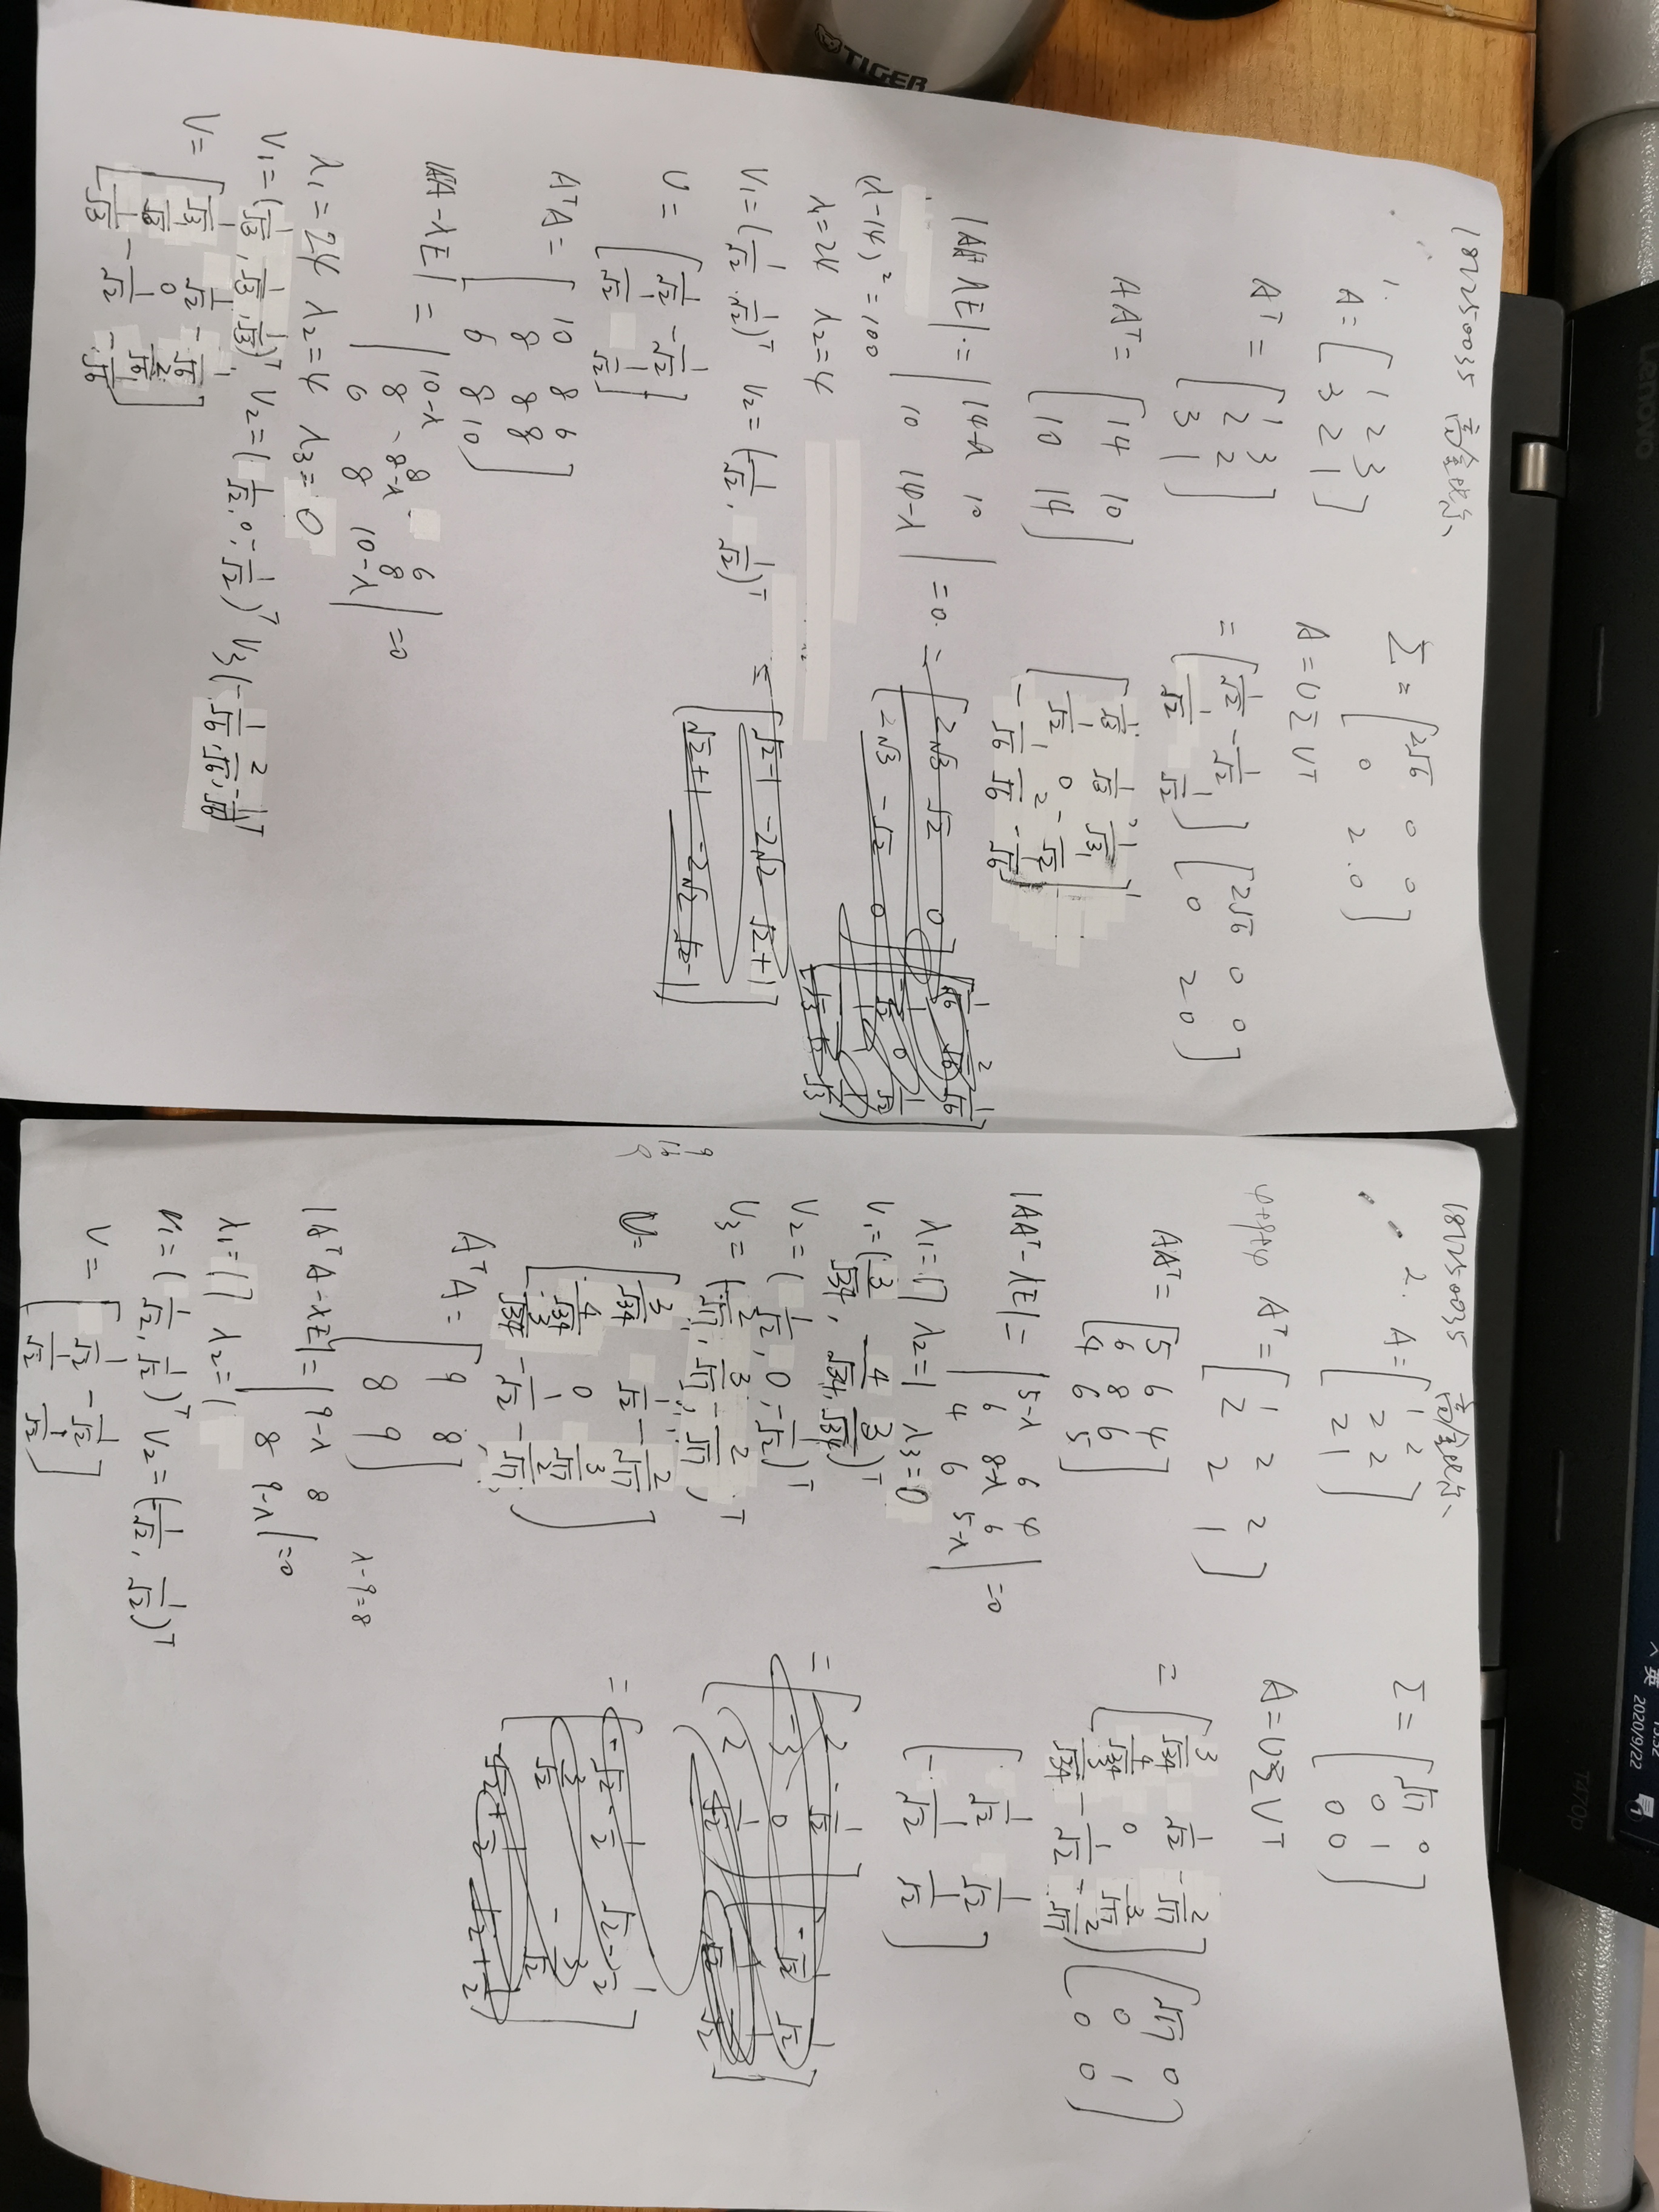 Lenovo
英
15:32
2020/9/22
T470p
TIGER
181250035 高金比尔
1.
A = [ 1 2 3
3 2 1 ]
A^T = [ 1 3
2 2
3 1 ]
AA^T = [ 14 10
10 14 ]
|AA^T-λE| = | 14-λ 10
10 14-λ | = 0
(λ-14)² = 100
λ₁=24 λ₂=4
V₁=(1/√2, 1/√2)^T V₂=(-1/√2, 1/√2)^T
U = [ 1/√2 -1/√2
1/√2 1/√2 ]
A^TA = [ 10 8 6
8 8 8
6 8 10 ]
|A^TA-λE| = | 10-λ 8 6
8 8-λ 8
6 8 10-λ | = 0
λ₁=24 λ₂=4 λ₃=0
V₁=(1/√3, 1/√3, 1/√3)^T V₂=(1/√2, 0, -1/√2)^T V₃(-1/√6, 2/√6, -1/√6)^T
V = [ 1/√3 1/√2 -1/√6
1/√3 0 2/√6
1/√3 -1/√2 -1/√6 ]
Σ = [ 2√6 0 0
0 2 0 ]
A = UΣVT
= [ 1/√2 -1/√2
1/√2 1/√2 ] [ 2√6 0 0
0 2 0 ]
[ 1/√3 1/√3 1/√3
1/√2 0 -1/√2
-1/√6 2/√6 -1/√6 ]
= [ 2√3 √2 0
2√3 -√2 0 ] [ 1/√6 2/√6 1/√6
-1/√2 0 1/√2
= [ √2-1 -2√2 √2+1
√2+1 -2√2 √2-1 ]
181250035 高金比尔
2. A = [ 1 2
2 2
2 1 ]
4+9+4 A^T = [ 1 2 2
2 2 1 ]
AA^T = [ 5 6 4
6 8 6
4 6 5 ]
|AA^T-λE| = | 5-λ 6 4
6 8-λ 6
4 6 5-λ | = 0
λ₁=17 λ₂=1 λ₃=0
V₁=(3/√34, 4/√34, 3/√34)^T
V₂=(1/√2, 0, -1/√2)^T
V₃=(-2/√17, 3/√17, -2/√17)^T
9
16
9
U = [ 3/√34 1/√2 -2/√17
4/√34 0 3/√17
3/√34 -1/√2 -2/√17 ]
A^TA = [ 9 8
8 9 ]
λ-9=8
|A^TA-λE| = | 9-λ 8
8 9-λ | = 0
λ₁=17 λ₂=1
V₁=(1/√2, 1/√2)^T V₂=(-1/√2, 1/√2)^T
V = [ 1/√2 -1/√2
1/√2 1/√2 ]
Σ = [ √17 0
0 1
0 0 ]
A = UΣVT
= [ 3/√34 1/√2 -2/√17
4/√34 0 3/√17
3/√34 -1/√2 -2/√17 ] [ √17 0
0 1
0 0 ]
[ 1/√2 1/√2
-1/√2 1/√2 ]
= [ 2 -1/√2
-3 0
2 1/√2 ] [ -1/√2 1/√2
1/√2 1/√2 ]
= [ -√2-1/2 √2-1/2
3/√2 -3/√2
-√2+1/2 √2+1/2 ]